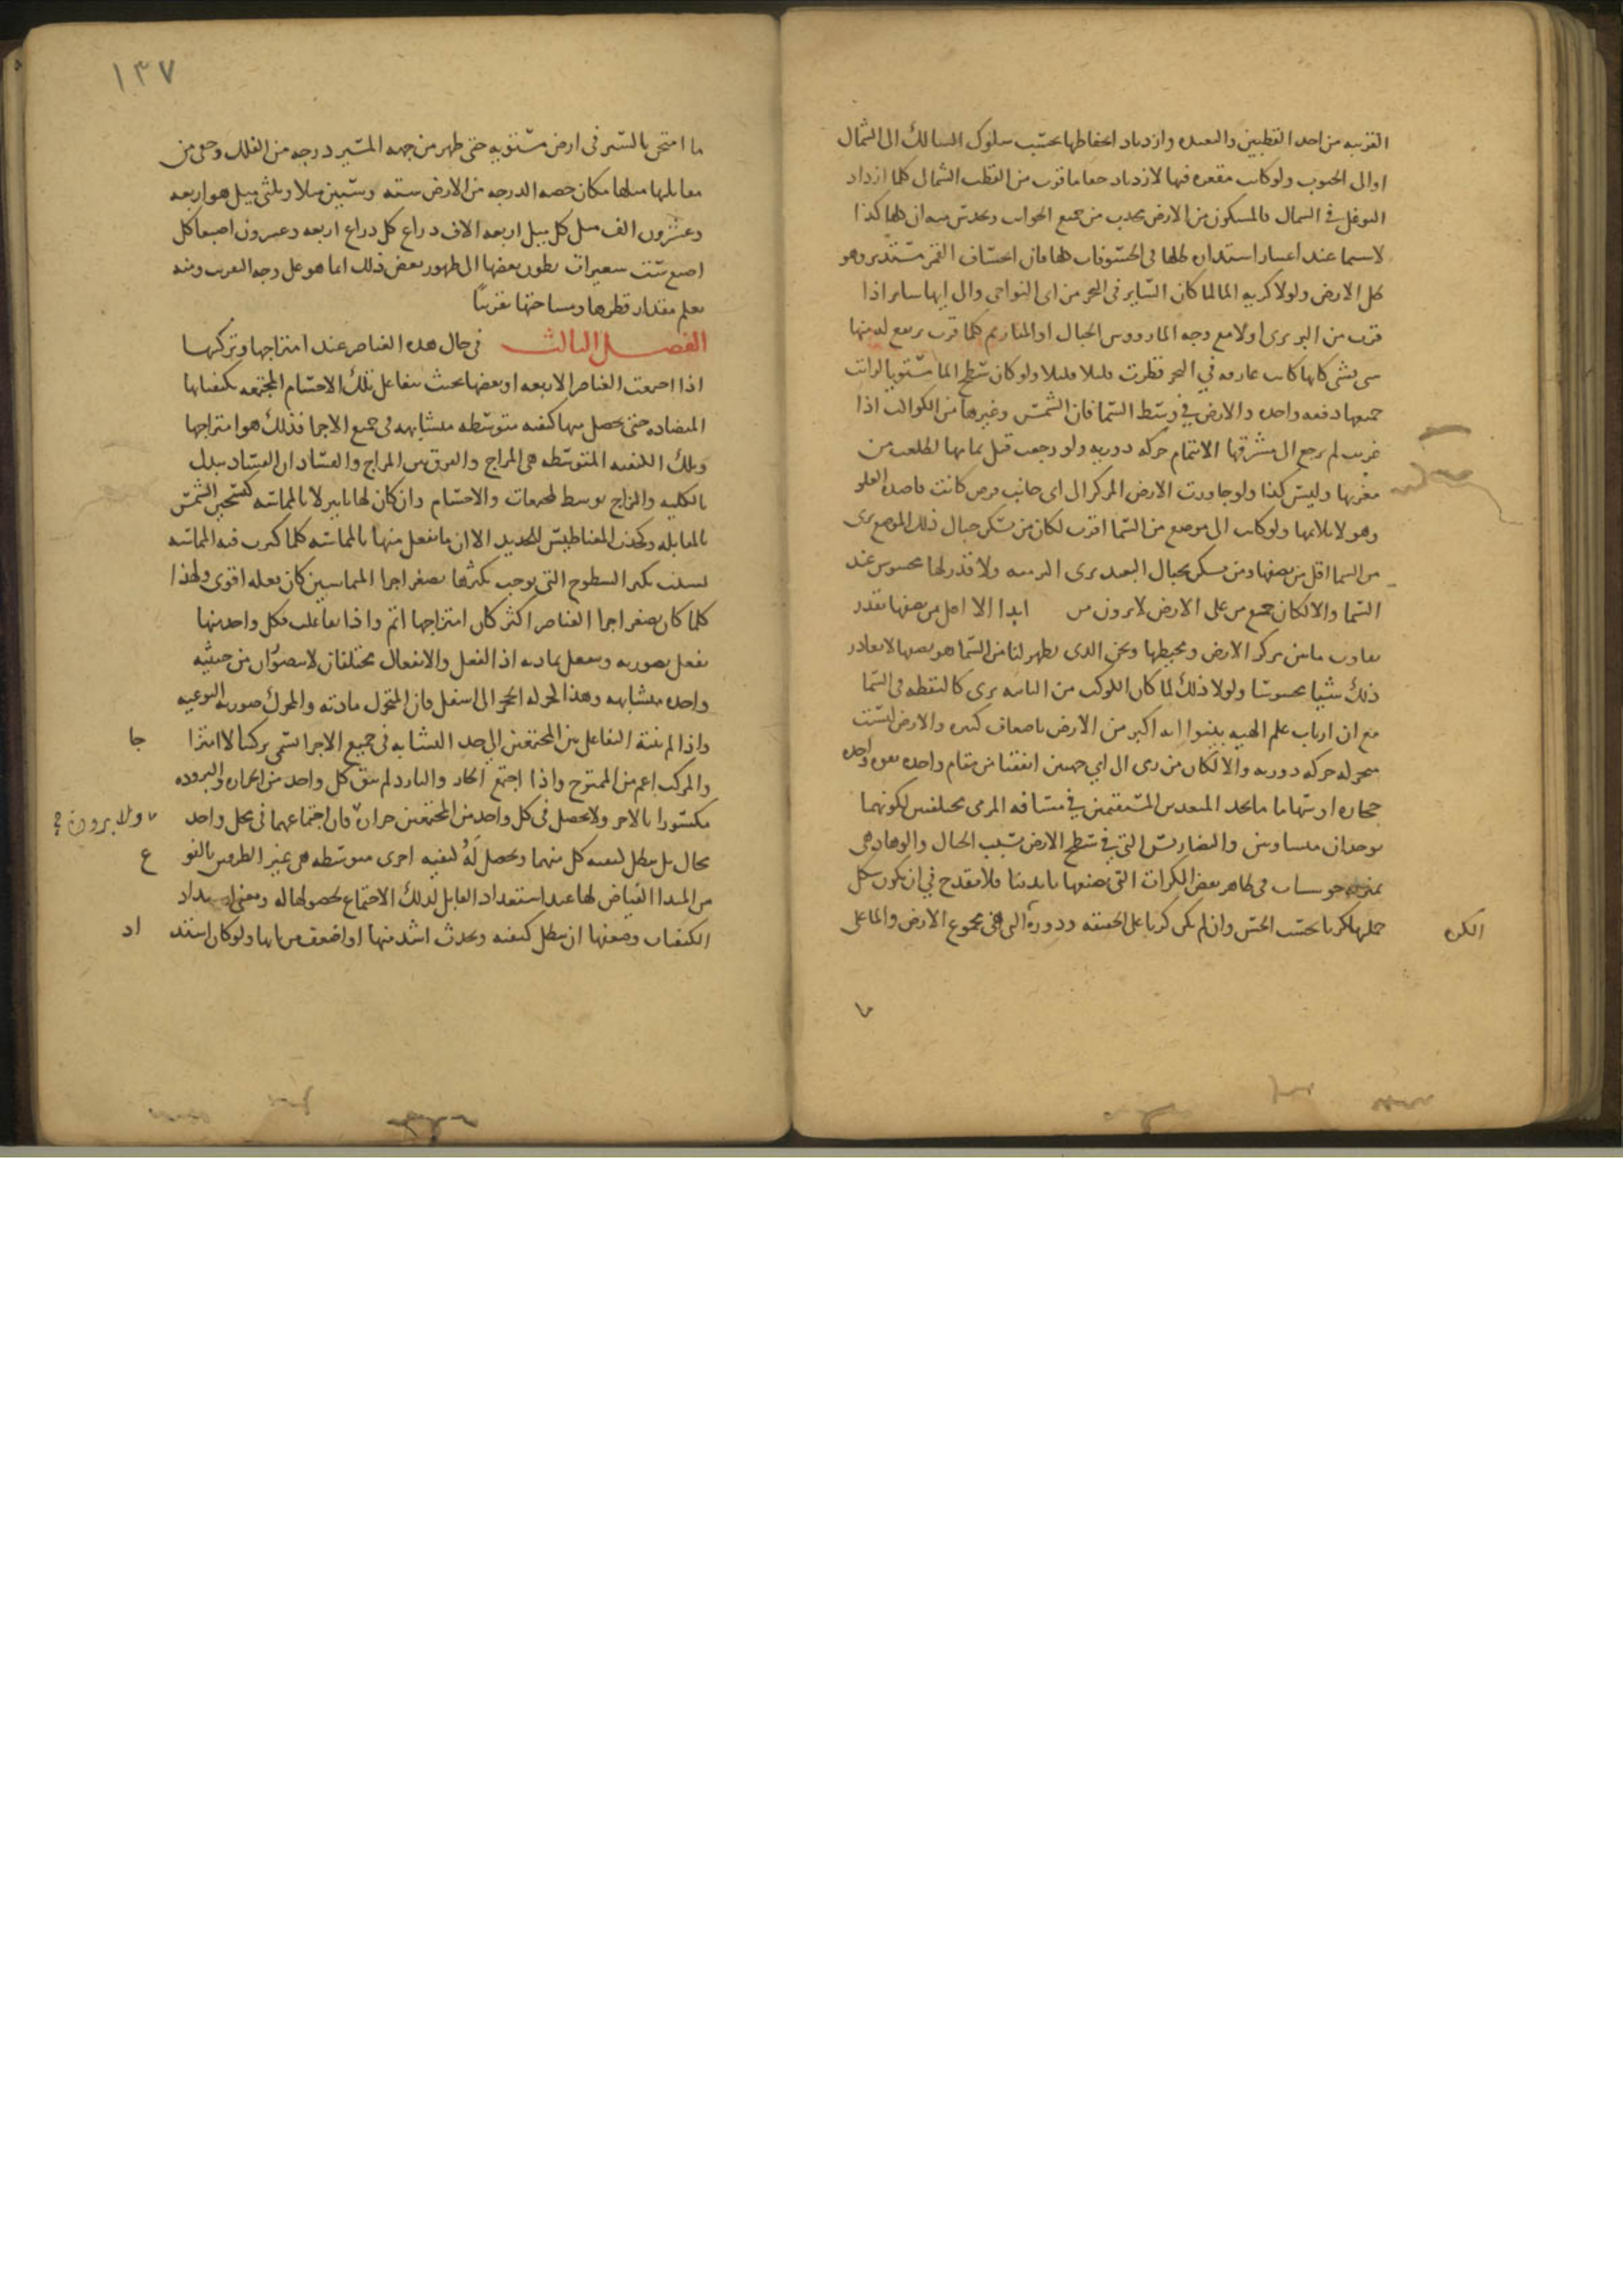 القريبه من احد القطبين والبعيده وازدياد انحفاظها بحسب سلوك السالك الى الشمال
او الى الجنوب ولو كانت مقعره فيها لازدياد خفا ما قرب من القطب الشمالى كلما ازداد
التوغل فى الشمال فالمسكون من الارض محدب من جميع الجوانب ويحدس منه ان كلها كذا
لا سيما عند اعتبار استداره ظلها فى الخسوفات كلها فان انخساف القمر مستدير وهو
ظل الارض ولولا كريه الما لما كان الساير فى البحر من اى النواحى والى ايها ساير اذا
قرب من البر يرى اولا مع وجه الما رووس الجبال او المنار ثم كلما قرب يرتفع له منها
شى فشى كانها كانت غارقه فى البحر فظهرت قليلا قليلا ولو كان سطح الما مستويا لراتت
جميعها دفعه واحده والارض فى وسط السما فان الشمس وغيرها من الكواكب اذا
غربت لم يرجع الى مشرقها الا بتمام حركه دوريه ولو رجعت قبل تمامها لطلعت من
مغربها وليس كذا ولو جاوزت الارض المركز الى اى جانب فرض كانت قاصده العلو
وهو لا يلايمها ولو كانت الى موضع من السما اقرب لكان من يسكن حيال ذلك الموضع يرى
من السما اقل من نصفها ومن يسكن بحيال البعد يرى اكثر منه ولا قدر لها محسوس عند
السما والا لكان جميع من على الارض لا يرون من ابدا الا اقل من نصفها بقدر
تفاوت ما بين مركز الارض ومحيطها ونحن الذى يظهر لنا من السما هو نصفها لا يغادر
ذلك شيا محسوسا ولولا ذلك لما كان الكوكب من الثابته يرى كالنقطه فى السما
مع ان ارباب علم الهيه بينوا انه اكبر من الارض باضعاف كثيره والارض ليست
متحركه حركه دوريه والا لكان من رمى الى اى جهتين اتفقتا من مقام واحد بقوه واحده
حجاره او سهاما ما يحد البعدين المستقيمين فى مسافه المرمى مختلفين لكونهما
يوجدان متساويين والتضاريس التى فى سطح الارض بسبب الجبال والوهاد هى
بمنزله خشونات فى ظاهر بعض الكرات التى نصنعها بايدينا فلا يقدح فى ان يكون شكل
جملتها كريا بحسب الحس وان لم يكن كريا على الحقيقه ودوره التى هى مجموع الارض والما على
الكره
١٣٧
ما امتحن بالسير فى ارض مستويه حتى ظهر من جهه المسير درجه من الفلك وخفى من
مقابلتها مثلها فكان حصه الدرجه من الارض سته وستين ميلا وثلثى ميل هو اربعه
وعشرون الف ميل كل ميل اربعه الاف ذراع كل ذراع اربعه وعشرون اصبعا كل
اصبع ست شعيرات بطون بعضها الى ظهور بعض ذلك انما هو على وجه التقريب ومنه
يعلم مقدار قطرها ومساحتها تقريبا
الفصل الثالث فى حال هذه العناصر عند امتزاجها وتركبها
اذا اجتمعت العناصر الاربعه او بعضها بحيث يتفاعل تلك الاجسام المجتمعه بكيفياتها
المتضاده حتى يحصل منها كيفيه متوسطه متشابهه فى جميع الاجزا فذلك هو امتزاجها
وتلك الكيفيه المتوسطه هى المزاج والفرق بين المزاج والفساد ان الفساد يبدل
بالكليه والمزاج توسط المجتمعات والاجسام وان كان لها تاثير لا بالمماسه كتسخين الشمس
بالمقابله وكجذب المغناطيس للحديد الا ان ما يفعل منها بالمماسه كلما كثرت فيه المماسه
بسبب تكثر السطوح التى يوجب تكثرها تصغر اجزا المتماسين كان فعله اقوى ولهذا
كلما كان تصغر اجزا العناصر اكثر كان امتزاجها اتم واذا تفاعلت فكل واحد منها
يفعل بصورته وينفعل بمادته اذ الفعل والانفعال مختلفان لا يتصوران من حيثيه
واحده متشابهه وهذا كحركه الحجر الى اسفل فان المتحرك مادته والمحرك صورته النوعيه
واذا لم ينته التفاعل بين المجتمعين الى حد التشابه فى جميع الاجزا سمى تركبا لا امتزا جا
والمركب اعم من الممتزج واذا اجتمع الحار والبارد لم يبق كل واحد من الحراره والبروده
مكسورا بالاخر ولا يحصل فى كل واحد من المجتمعين حراره فان اجتماعهما فى محل واحد
ولا برودة
محال بل يبطل كيفيه كل منهما ويحصل له كيفيه اخرى متوسطه هى غير الطرفين بالنو ع
من المبدا الفياض لها عند استعداد القابل لذلك الاجتماع لحصولها له ومعنى اشتداد
الكيفيات وضعفها ان تبطل كيفيه ويحدث اشد منها او اضعف من بابها ولو كان اشتد اد